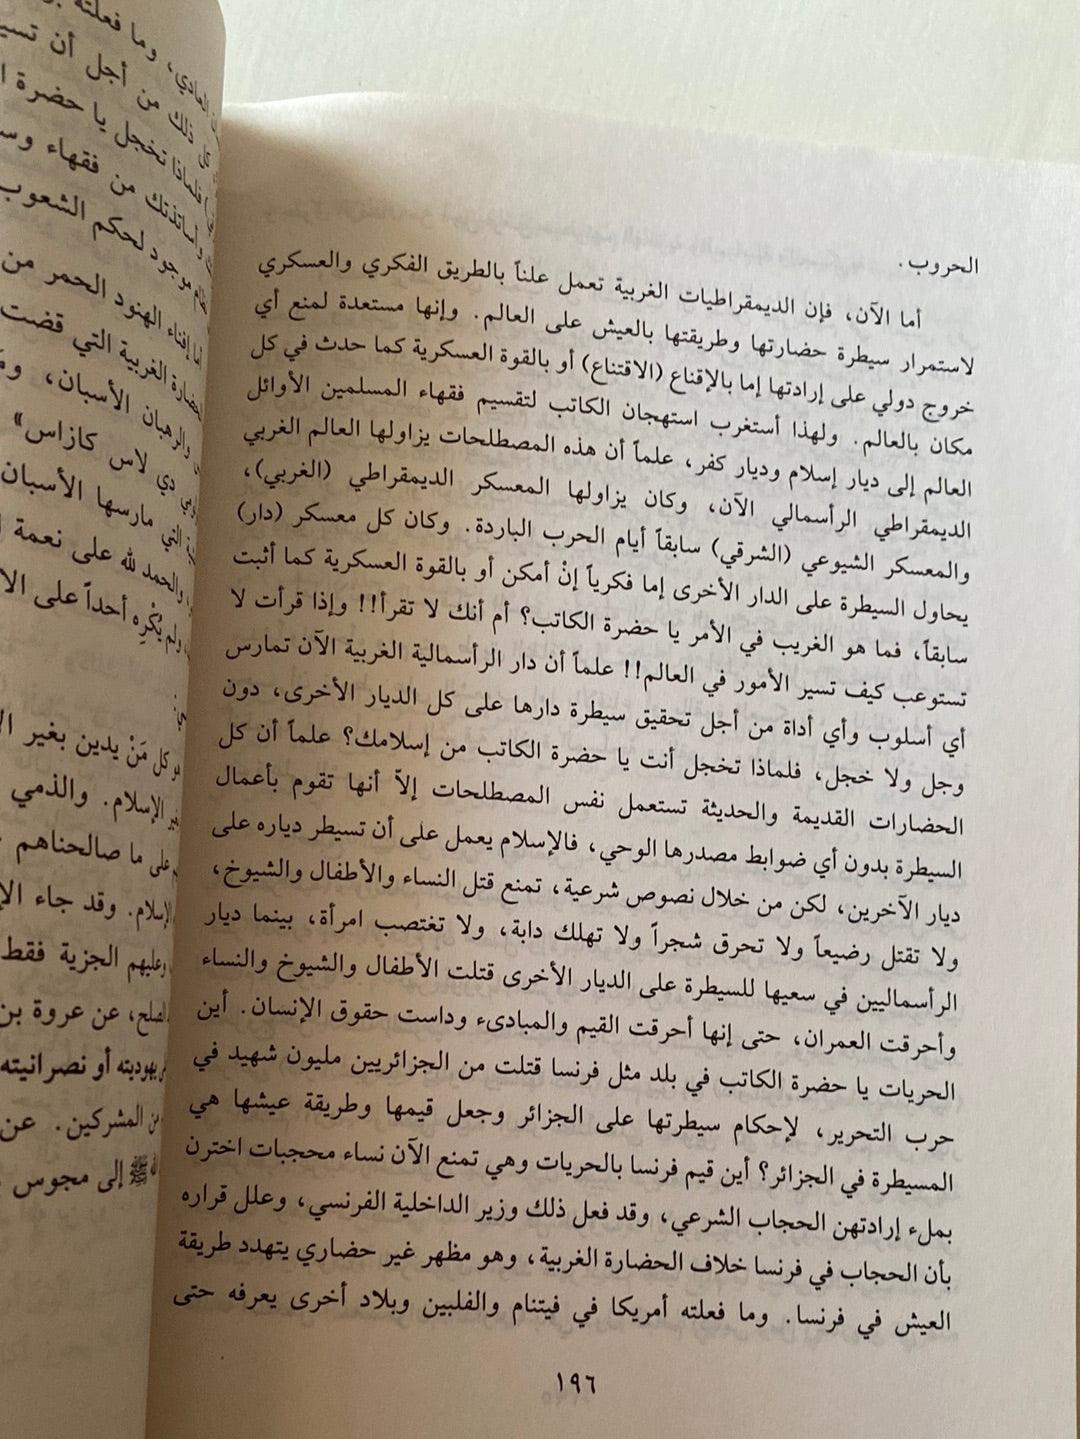 الحروب.
أما الآن، فإن الديمقراطيات الغربية تعمل علناً بالطريق الفكري والعسكري
لاستمرار سيطرة حضارتها وطريقتها بالعيش على العالم. وإنها مستعدة لمنع أي
خروج دولي على إرادتها إما بالإقناع (الاقتناع) أو بالقوة العسكرية كما حدث في كل
مكان بالعالم. ولهذا أستغرب استهجان الكاتب لتقسيم فقهاء المسلمين الأوائل
العالم إلى ديار إسلام وديار كفر، علماً أن هذه المصطلحات يزاولها العالم الغربي
الديمقراطي الرأسمالي الآن، وكان يزاولها المعسكر الديمقراطي (الغربي)،
والمعسكر الشيوعي (الشرقي) سابقاً أيام الحرب الباردة. وكان كل معسكر (دار)
يحاول السيطرة على الدار الأخرى إما فكرياً إنْ أمكن أو بالقوة العسكرية كما أثبت
سابقاً، فما هو الغريب في الأمر يا حضرة الكاتب؟ أم أنك لا تقرأ!! وإذا قرأت لا
تستوعب كيف تسير الأمور في العالم!! علماً أن دار الرأسمالية الغربية الآن تمارس
أي أسلوب وأي أداة من أجل تحقيق سيطرة دارها على كل الديار الأخرى، دون
وجل ولا خجل، فلماذا تخجل أنت يا حضرة الكاتب من إسلامك؟ علماً أن كل
الحضارات القديمة والحديثة تستعمل نفس المصطلحات إلاّ أنها تقوم بأعمال
السيطرة بدون أي ضوابط مصدرها الوحي، فالإسلام يعمل على أن تسيطر دياره على
ديار الآخرين، لكن من خلال نصوص شرعية، تمنع قتل النساء والأطفال والشيوخ،
ولا تقتل رضيعاً ولا تحرق شجراً ولا تهلك دابة، ولا تغتصب امرأة، بينما ديار
الرأسماليين في سعيها للسيطرة على الديار الأخرى قتلت الأطفال والشيوخ والنساء
وأحرقت العمران، حتى إنها أحرقت القيم والمبادىء وداست حقوق الإنسان. أين
الحريات يا حضرة الكاتب في بلد مثل فرنسا قتلت من الجزائريين مليون شهيد في
حرب التحرير، لإحكام سيطرتها على الجزائر وجعل قيمها وطريقة عيشها هي
المسيطرة في الجزائر؟ أين قيم فرنسا بالحريات وهي تمنع الآن نساء محجبات اخترن
بملء إرادتهن الحجاب الشرعي، وقد فعل ذلك وزير الداخلية الفرنسي، وعلل قراره
بأن الحجاب في فرنسا خلاف الحضارة الغربية، وهو مظهر غير حضاري يتهدد طريقة
العيش في فرنسا. وما فعلته أمريكا في فيتنام والفلبين وبلاد أخرى يعرفه حتى
١٩٦
العادي، وما فعلته
كل ذلك من أجل أن
فلماذا تخجل يا حضرة
وأساتذتك من فقهاء
موجود لحكم الشعوب
إفناء الهنود الحمر من
الغربية التي قضت
والرهبان الأسبان،
دي لاس كازاس»
التي مارسها الأسبان
والحمد لله على نعمة
ولم يُكْرِه أحداً على
كل مَنْ يدين بغير
الإسلام. والذمي
على ما صالحناهم
الإسلام. وقد جاء
وعليهم الجزية فقط
الصلح، عن عروة بن
يهوديته أو نصرانيته
من المشركين. عن
ﷺ إلى مجوس